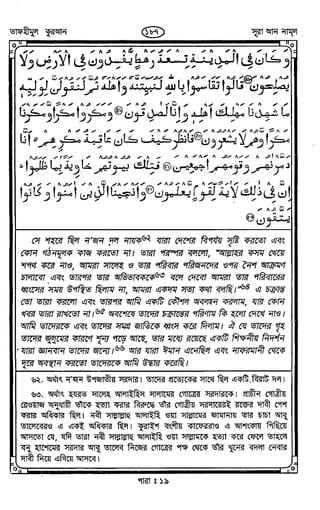 তাফহীমুল কুরআন
১৮৭
সূরা আন নামল
وَكَانَ فِى الْمَدِيْنَةِ تِسْعَةُ رَهْطٍ يُّفْسِدُوْنَ فِى الْاَرْضِ وَلَا
يُصْلِحُوْنَ۝ قَالُوْا تَقَاسَمُوْا بِاللّٰهِ لَنُبَيِّتَنَّهٗ وَاَهْلَهٗ ثُمَّ لَنَقُوْلَنَّ لِوَلِيِّهٖ
مَا شَهِدْنَا مَهْلِكَ اَهْلِهٖ وَاِنَّا لَصٰدِقُوْنَ۝ وَمَكَرُوْا مَكْرًا وَّمَكَرْنَا
مَكْرًا وَّهُمْ لَا يَشْعُرُوْنَ۝ فَانْظُرْ كَيْفَ كَانَ عَاقِبَةُ مَكْرِهِمْ اَنَّا
دَمَّرْنٰهُمْ وَقَوْمَهُمْ اَجْمَعِيْنَ۝ فَتِلْكَ بُيُوْتُهُمْ خَاوِيَةً بِمَا ظَلَمُوْا
اِنَّ فِىْ ذٰلِكَ لَاٰيَةً لِّقَوْمٍ يَّعْلَمُوْنَ۝ وَاَنْجَيْنَا الَّذِيْنَ اٰمَنُوْا وَكَانُوْا
يَتَّقُوْنَ۝
সে শহরে ছিল ন'জন দল নায়ক৬২ যারা দেশের বিপর্যয় সৃষ্টি করতো এবং
কোন গঠনমূলক কাজ করতো না। তারা পরস্পর বললো, "আল্লাহর কসম খেয়ে
শপথ করে নাও, আমরা সালেহ ও তার পরিবার পরিজনদের ওপর নৈশ আক্রমণ
চালাবো এবং তারপর তার অভিভাবককে৬৩ বলে দেবো আমরা তার পরিবারের
ধ্বংসের সময় উপস্থিত ছিলাম না, আমরা একদম সত্য কথা বলছি।৬৪ এ চক্রান্ত
তো তারা করলো এবং তারপর আমি একটি কৌশল অবলম্বন করলাম, যার কোন
খবর তারা রাখতো না।৬৫ অবশেষে তাদের চক্রান্তের পরিণাম কি হলো দেখে নাও।
আমি তাদেরকে এবং তাদের সমগ্র জাতিকে ধ্বংস করে দিলাম। ঐ যে তাদের গৃহ
তাদের জুলুমের কারণে শূন্য পড়ে আছে, তার মধ্যে রয়েছে একটি শিক্ষনীয় নিদর্শন
যারা জ্ঞানবান তাদের জন্যে।৬৬ আর যারা ঈমান এনেছিল এবং নাফরমানী থেকে
দূরে অবস্থান করতো তাদেরকে আমি উদ্ধার করেছি।
৬২. অর্থাৎ ন'জন উপজাতীয় সরদার। তাদের প্রত্যেকের সাথে ছিল একটি বিরাট দল।
৬৩. অর্থাৎ হযরত সালেহ আলাইহিস সালামের গোত্রের সরদারকে। প্রাচীন গোত্রীয়
রেওয়াজ অনুযায়ী তাঁকে হত্যা করার বিরুদ্ধে তাঁর গোত্রীয় সরদারেরই রক্তের দাবী পেশ
করার অধিকার ছিল। নবী সাল্লাল্লাহু আলাইহি ওয়া সাল্লামের জামানায় তার চাচা আবু
তালেবেরও এ একই অধিকার ছিল। কুরাইশ বংশীয় কাফেররাও এ আশংকায় পিছিয়ে
আসতো যে, যদি তারা নবী সাল্লাল্লাহু আলাইহি ওয়া সাল্লামকে হত্যা করে ফেলে তাহলে
বনু হাশেমের সরদার আবু তালেব নিজের গোত্রের পক্ষ থেকে তাঁর খুনের বদলা নেবার
দাবী নিয়ে এগিয়ে আসবে।
পারা : ১৯